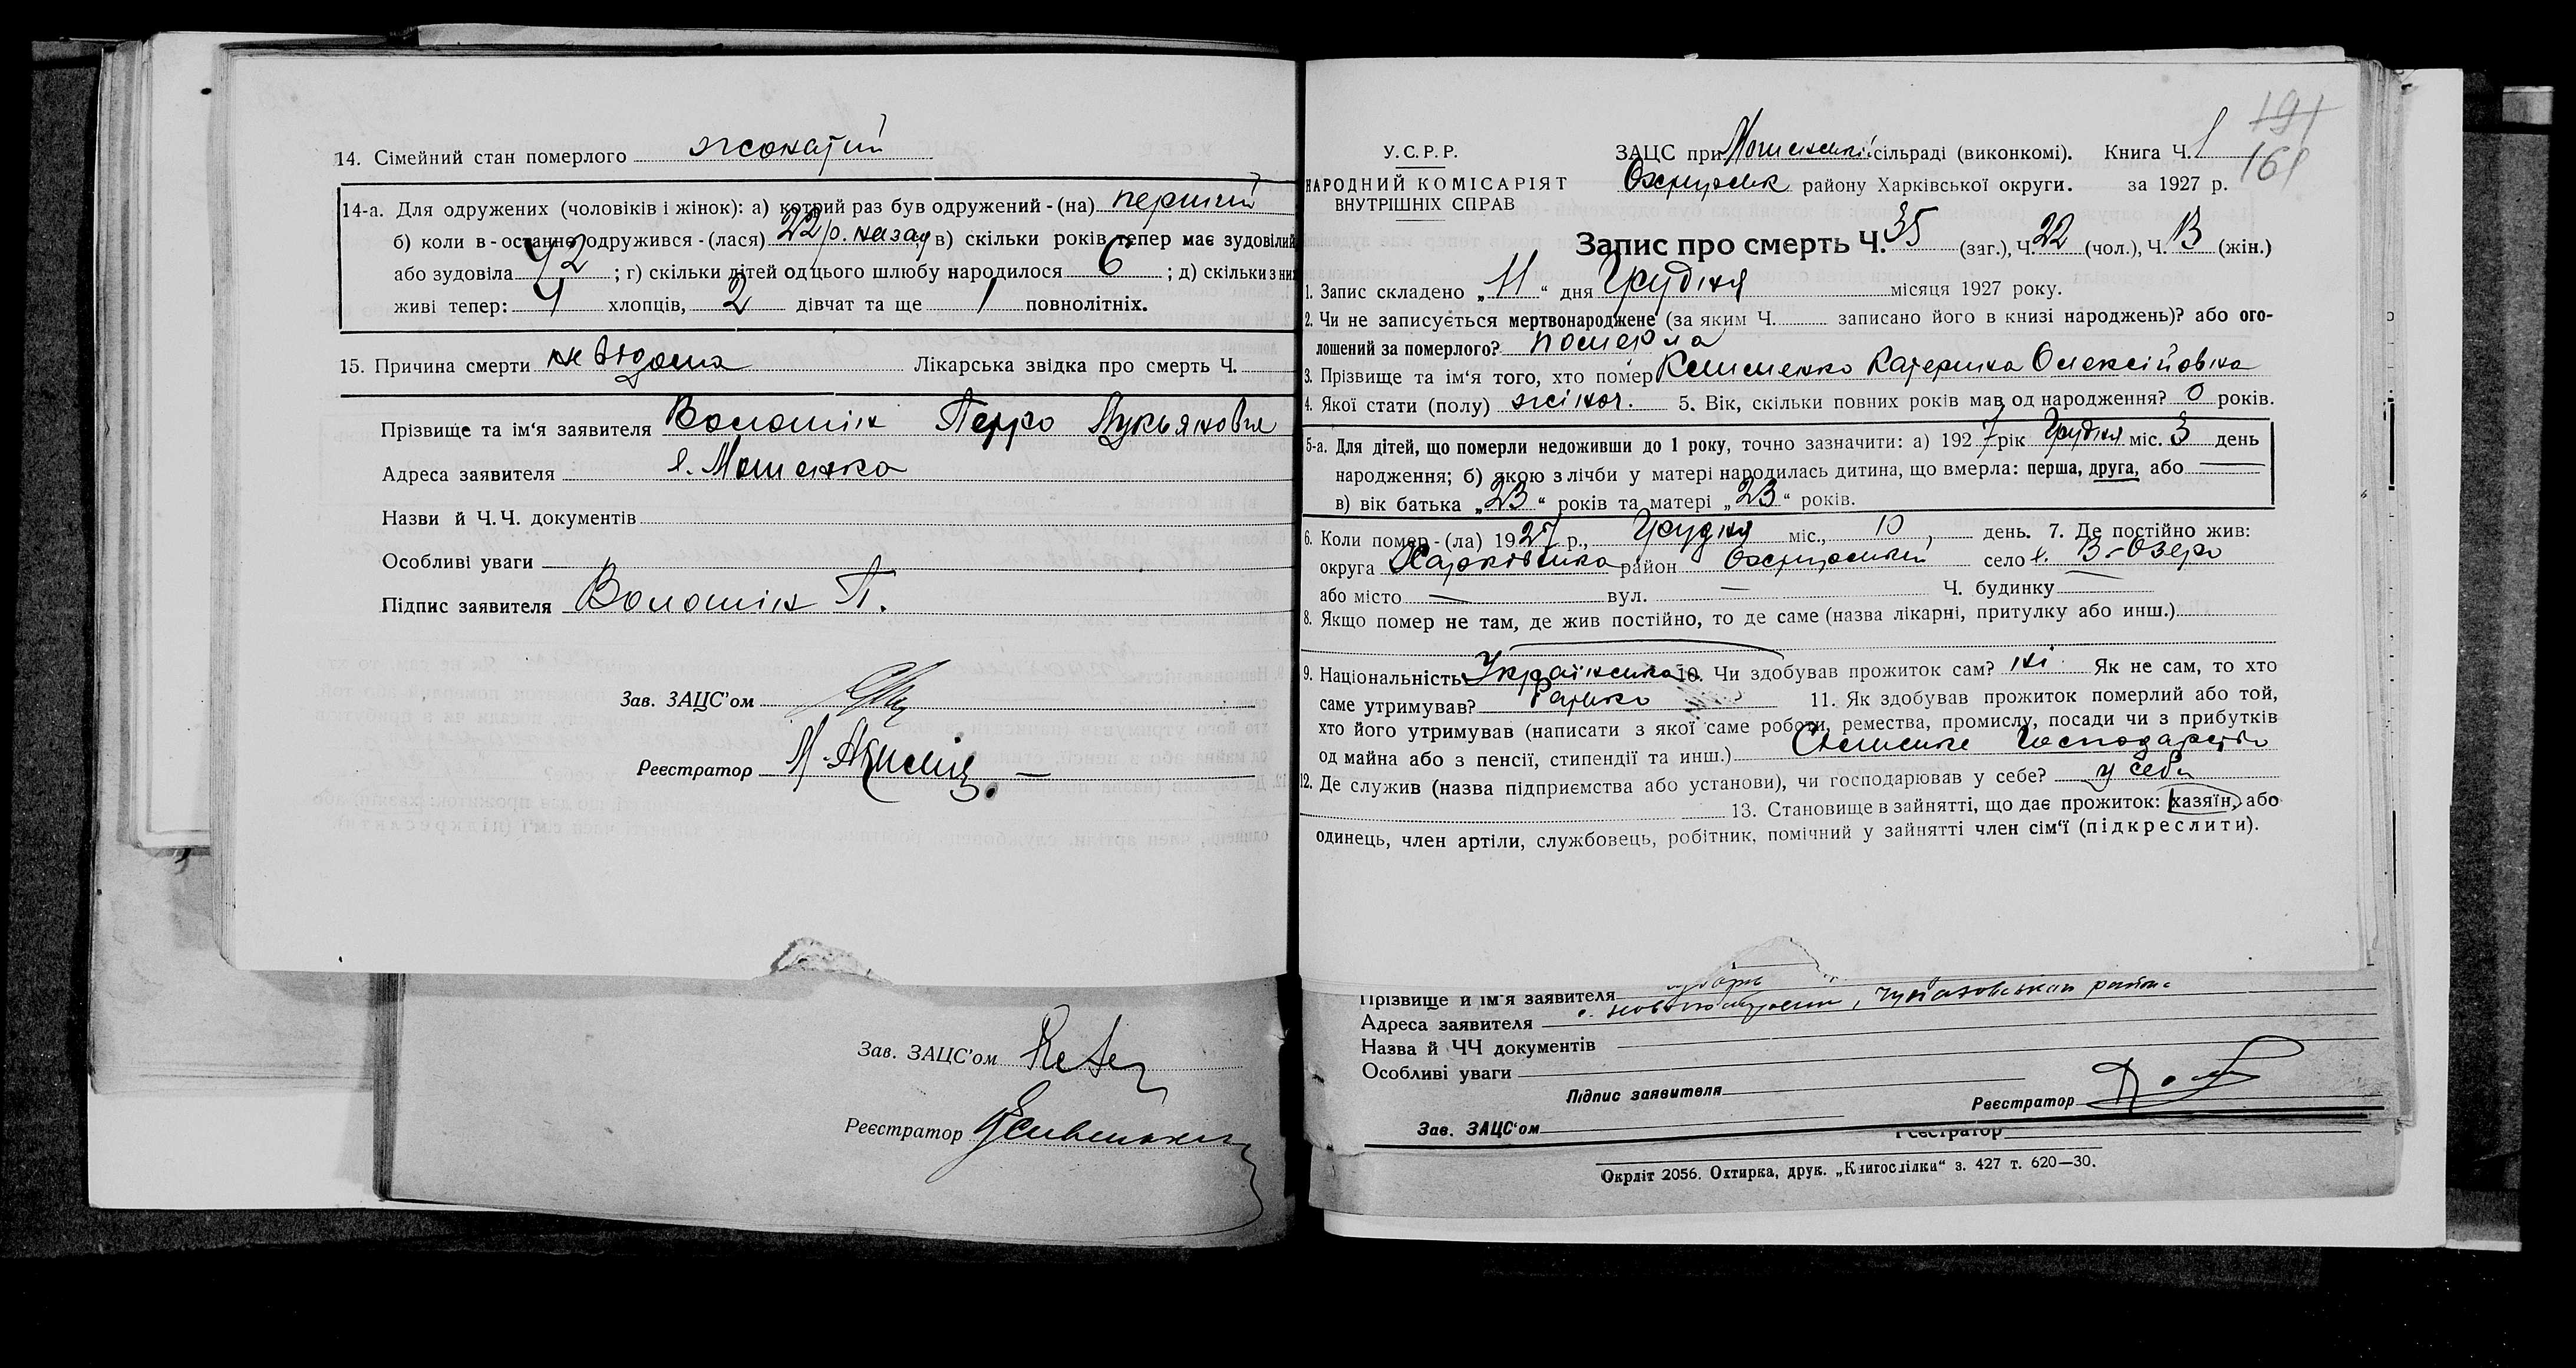 14. Сімейний стан померлого жонатий
14-а. Для одружених (чоловіків і жінок): а) котрий раз був одружений-(на) перший
б) коли в-останнє одружився-(лася) 22 р. назад в) скільки років тепер має зудовілий
або зудовіла 42 ; г) скільки дітей од цього шлюбу народилося 6 ; д) скільки з них
живі тепер: 4 хлопців, 2 дівчат та ще 1 повнолітніх.
15. Причина смерти невідома Лікарська звідка про смерть Ч.
Прізвище та ім'я заявителя Волошін Петро Лукьянович
Адреса заявителя с. Мошенка
Назви й Ч.Ч. документів
Особливі уваги
Підпис заявителя Волошін П.
Зав. ЗАЦС'ом
Реєстратор
Зав. ЗАЦС'ом
Реєстратор
191
161
У.С.Р.Р.
НАРОДНИЙ КОМІСАРІЯТ
ВНУТРІШНІХ СПРАВ
ЗАЦС при сільраді (виконкомі). Книга Ч. 1
Охтирськ району Харківської округи. за 1927 р.
Запис про смерть Ч. 35 (заг.), Ч. 22 (чол.), Ч. 13 (жін.)
1. Запис складено „11“ дня Грудня місяця 1927 року.
2. Чи не записується мертвонароджене (за яким Ч. записано його в книзі народжень)? або ого-
лошений за померлого? померла
3. Прізвище та ім'я того, хто помер Клименко Катерина Олексійовна
4. Якої стати (полу) жіноч. 5. Вік, скільки повних років мав од народження? 0 років.
5-а. Для дітей, що померли недоживши до 1 року, точно зазначити: а) 1927 рік Грудня міс. 3 день
народження; б) якою з лічби у матері народилась дитина, що вмерла: перша, друга, або —
в) вік батька „23“ років та матері „23“ років.
6. Коли помер-(ла) 1927 р., Грудня міс., 10, день. 7. Де постійно жив:
округа Харківська район Охтирський село с. В-Озеро
або місто — вул. — Ч. будинку —
8. Якщо помер не там, де жив постійно, то де саме (назва лікарні, притулку або инш.)
9. Національність Українська 10. Чи здобував прожиток сам? ні Як не сам, то хто
саме утримував? Батько 11. Як здобував прожиток померлий або той,
хто його утримував (написати з якої саме роботи, ремества, промислу, посади чи з прибутків
од майна або з пенсії, стипендії та инш.) Сельське Господарство
12. Де служив (назва підприємства або установи), чи господарював у себе? у себе
13. Становище в зайнятті, що дає прожиток: хазяїн, або
одинець, член артіли, службовець, робітник, помічний у зайнятті член сім'ї (підкреслити).
Прізвище й ім'я заявителя
Адреса заявителя
Назва й ЧЧ документів
Особливі уваги
Підпис заявителя
Реєстратор
Зав. ЗАЦС'ом
Реєстратор
Окрліт 2056. Охтирка, друк. „Книгоспілка“ з. 427 т. 620—30.